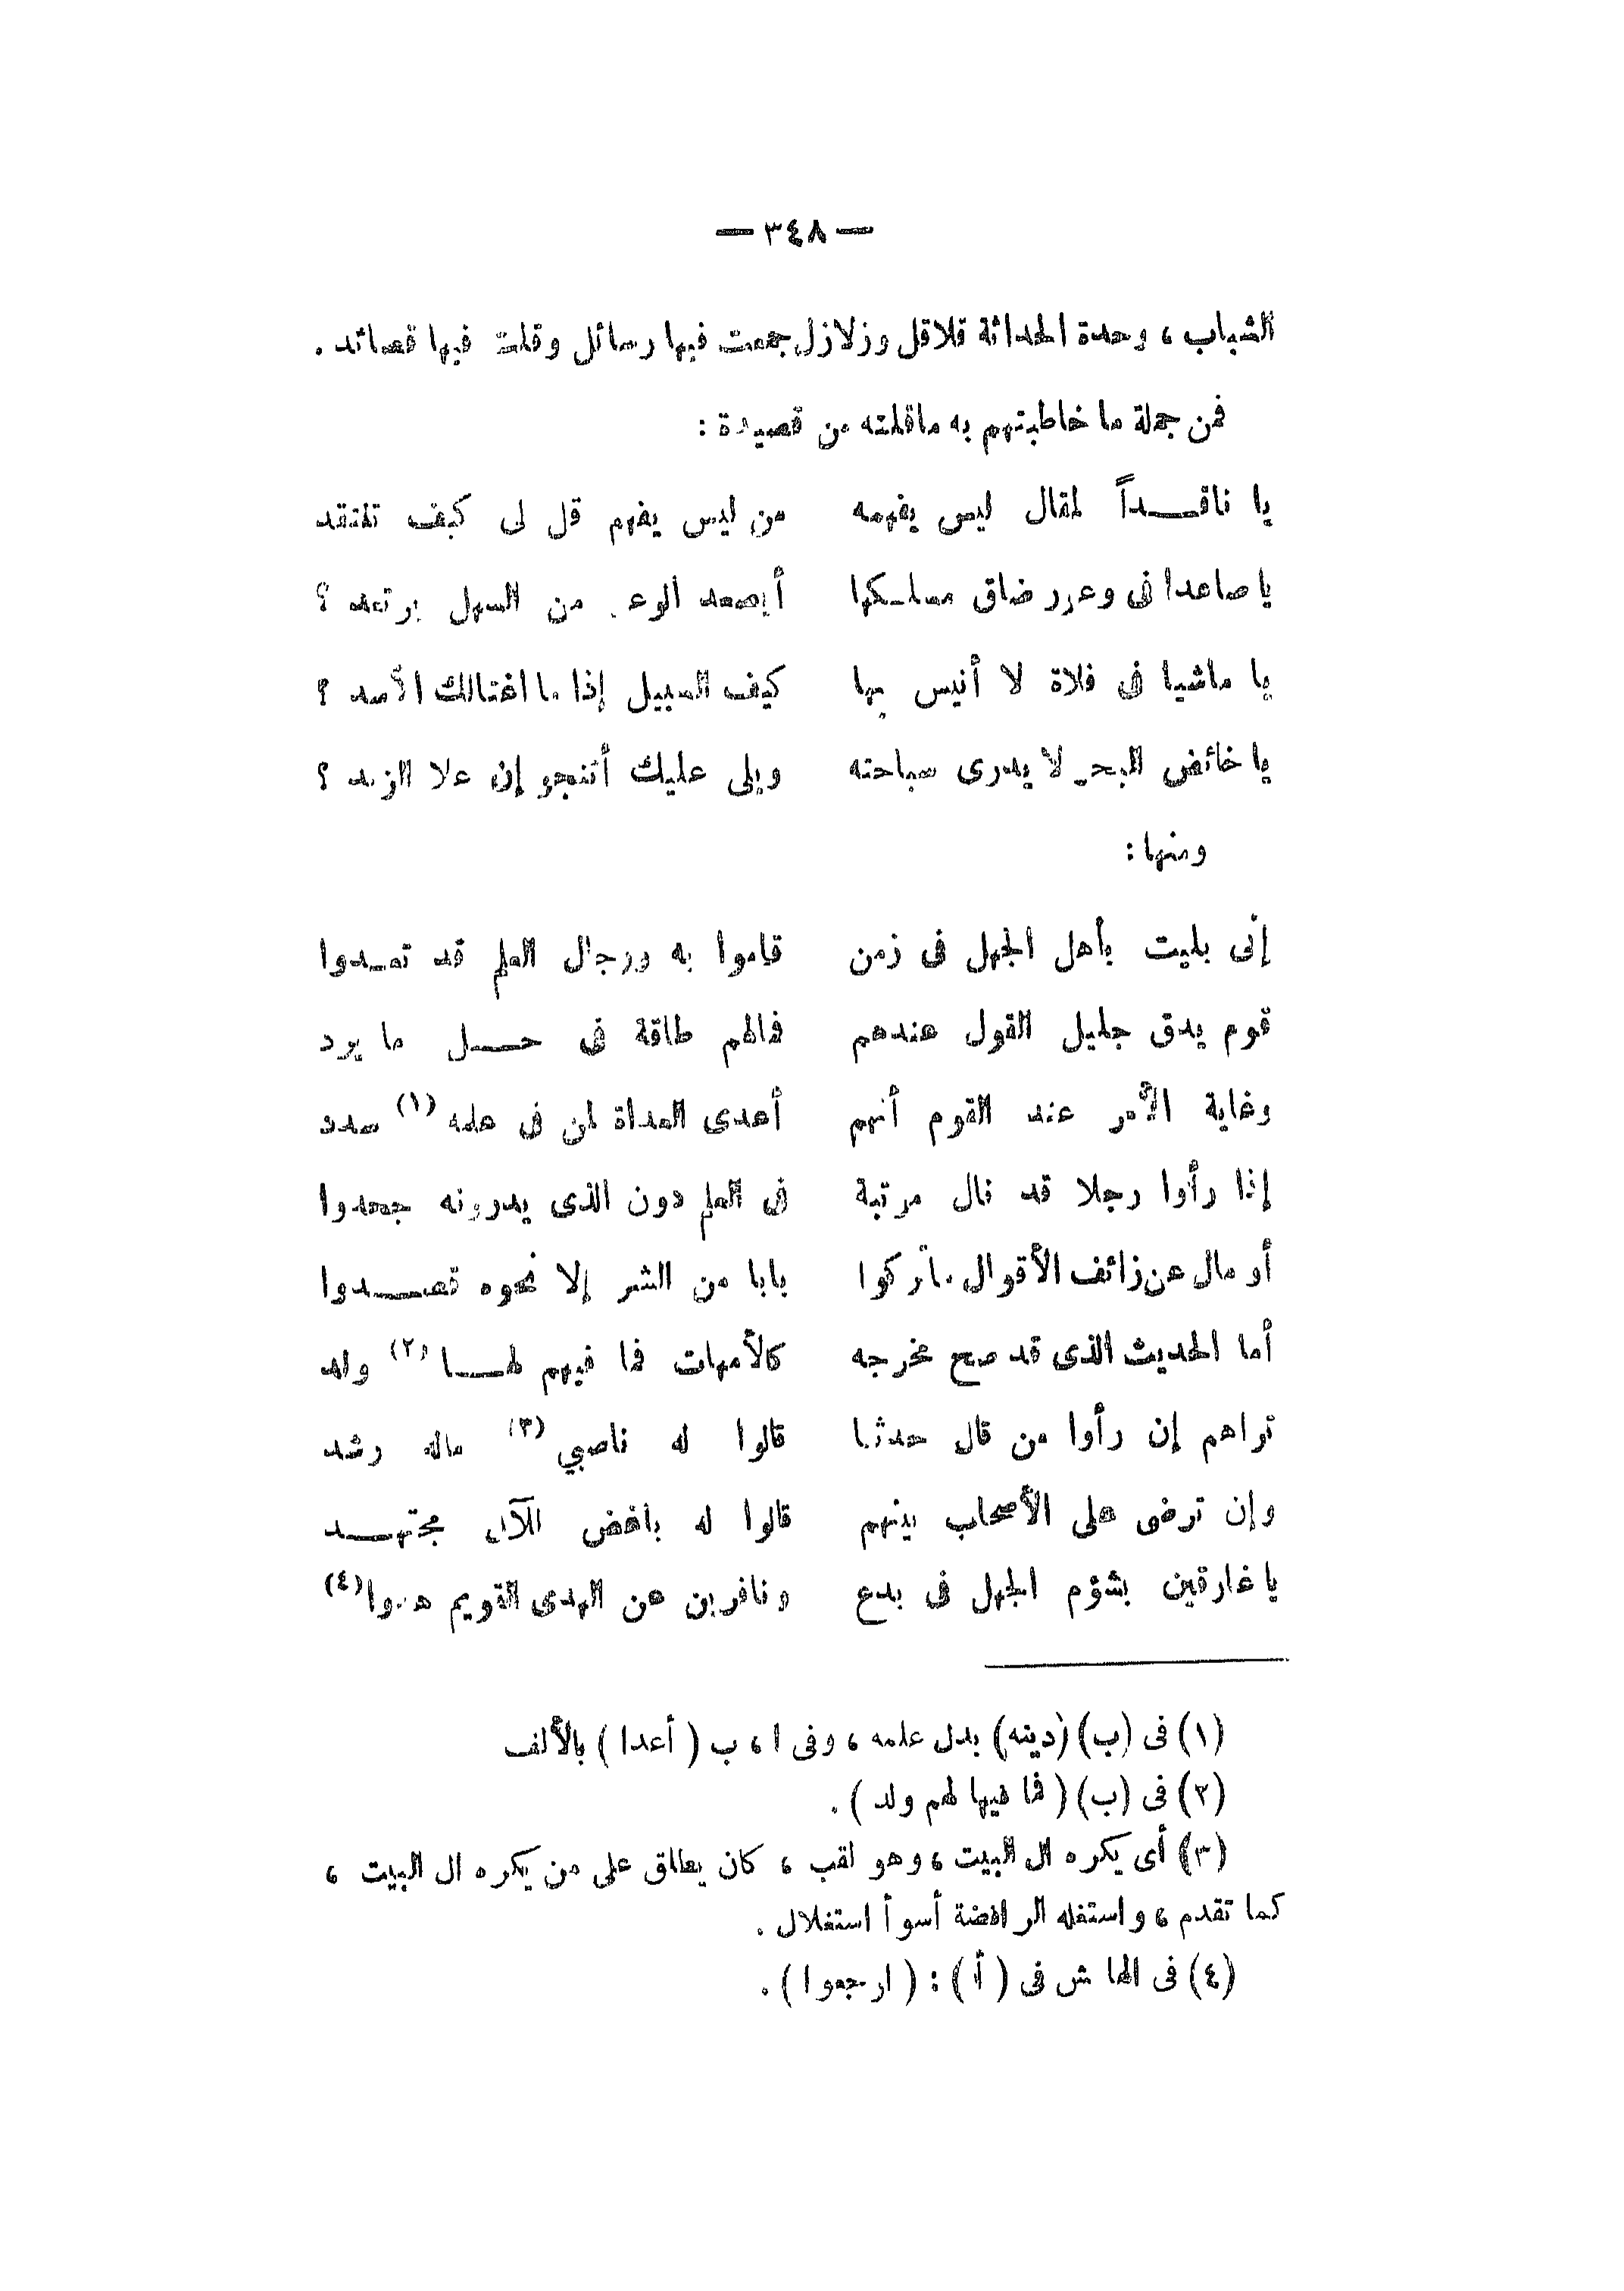 — ٣٤٨ —
الشباب ، وحدة الحداثة قلاقل وزلازل جمعت فيها رسائل وقلت فيها قصائد .
فمن جملة ما خاطبتهم به ماقلته من قصيدة :
يا ناقـــداً لمقال ليس يفهمه من ليس يفهم قل لى كيف تنتقد
يا صاعدا فى وعور ضاق مسلـكها أيصعد الوعر من السهل يرتعد ؟
يا ماشيا فى فلاة لا أنيس بها كيف السبيل إذا ما اغتالك الأسد ؟
يا خائض البحر لا يدرى سباحته ويلى عليك أتنجو إن علا الزبد ؟
ومنها :
إنى بليت بأهل الجهل فى زمن قاموا به ورجال العلم قد قعـدوا
قوم يدق جليل القول عندهم فمالهم طاقة فى حـــل ما يرد
وغاية الأمر عند القوم أنهم أعدى العداة لمن فى علمه (١) سدد
إذا رأوا رجلا قد نال مرتبة فى العلم دون الذى يدرونه جحدوا
أو مال عن زائف الأقوال ما تركوا بابا من الشر إلا نحوه قصـــدوا
أما الحديث الذى قد صح مخرجه كالأمهات فما فيهم لهـــا (٢) ولد
تراهم إن رأوا من قال حدثنا قالوا له ناصبي (٣) ماله رشد
وإن ترضى على الأصحاب بينهم قالوا له باغض الآل مجتهـــد
يا غارقين بشؤم الجهل فى بدع ونافرين عن الهدى القويم هدوا (٤)
(١) فى (ب) (دينه) بدل علمه ، وفى ا ، ب ( أعدا ) بالألف
(٢) فى (ب) ( فما فيها لهم ولد ) .
(٣) أى يكره ال البيت ، وهو لقب ، كان يطلق على من يكره ال البيت ،
كما تقدم ، واستغله الرافضة أسوأ استغلال .
(٤) فى الهامش فى ( أ ) : ( ارجعوا ) .